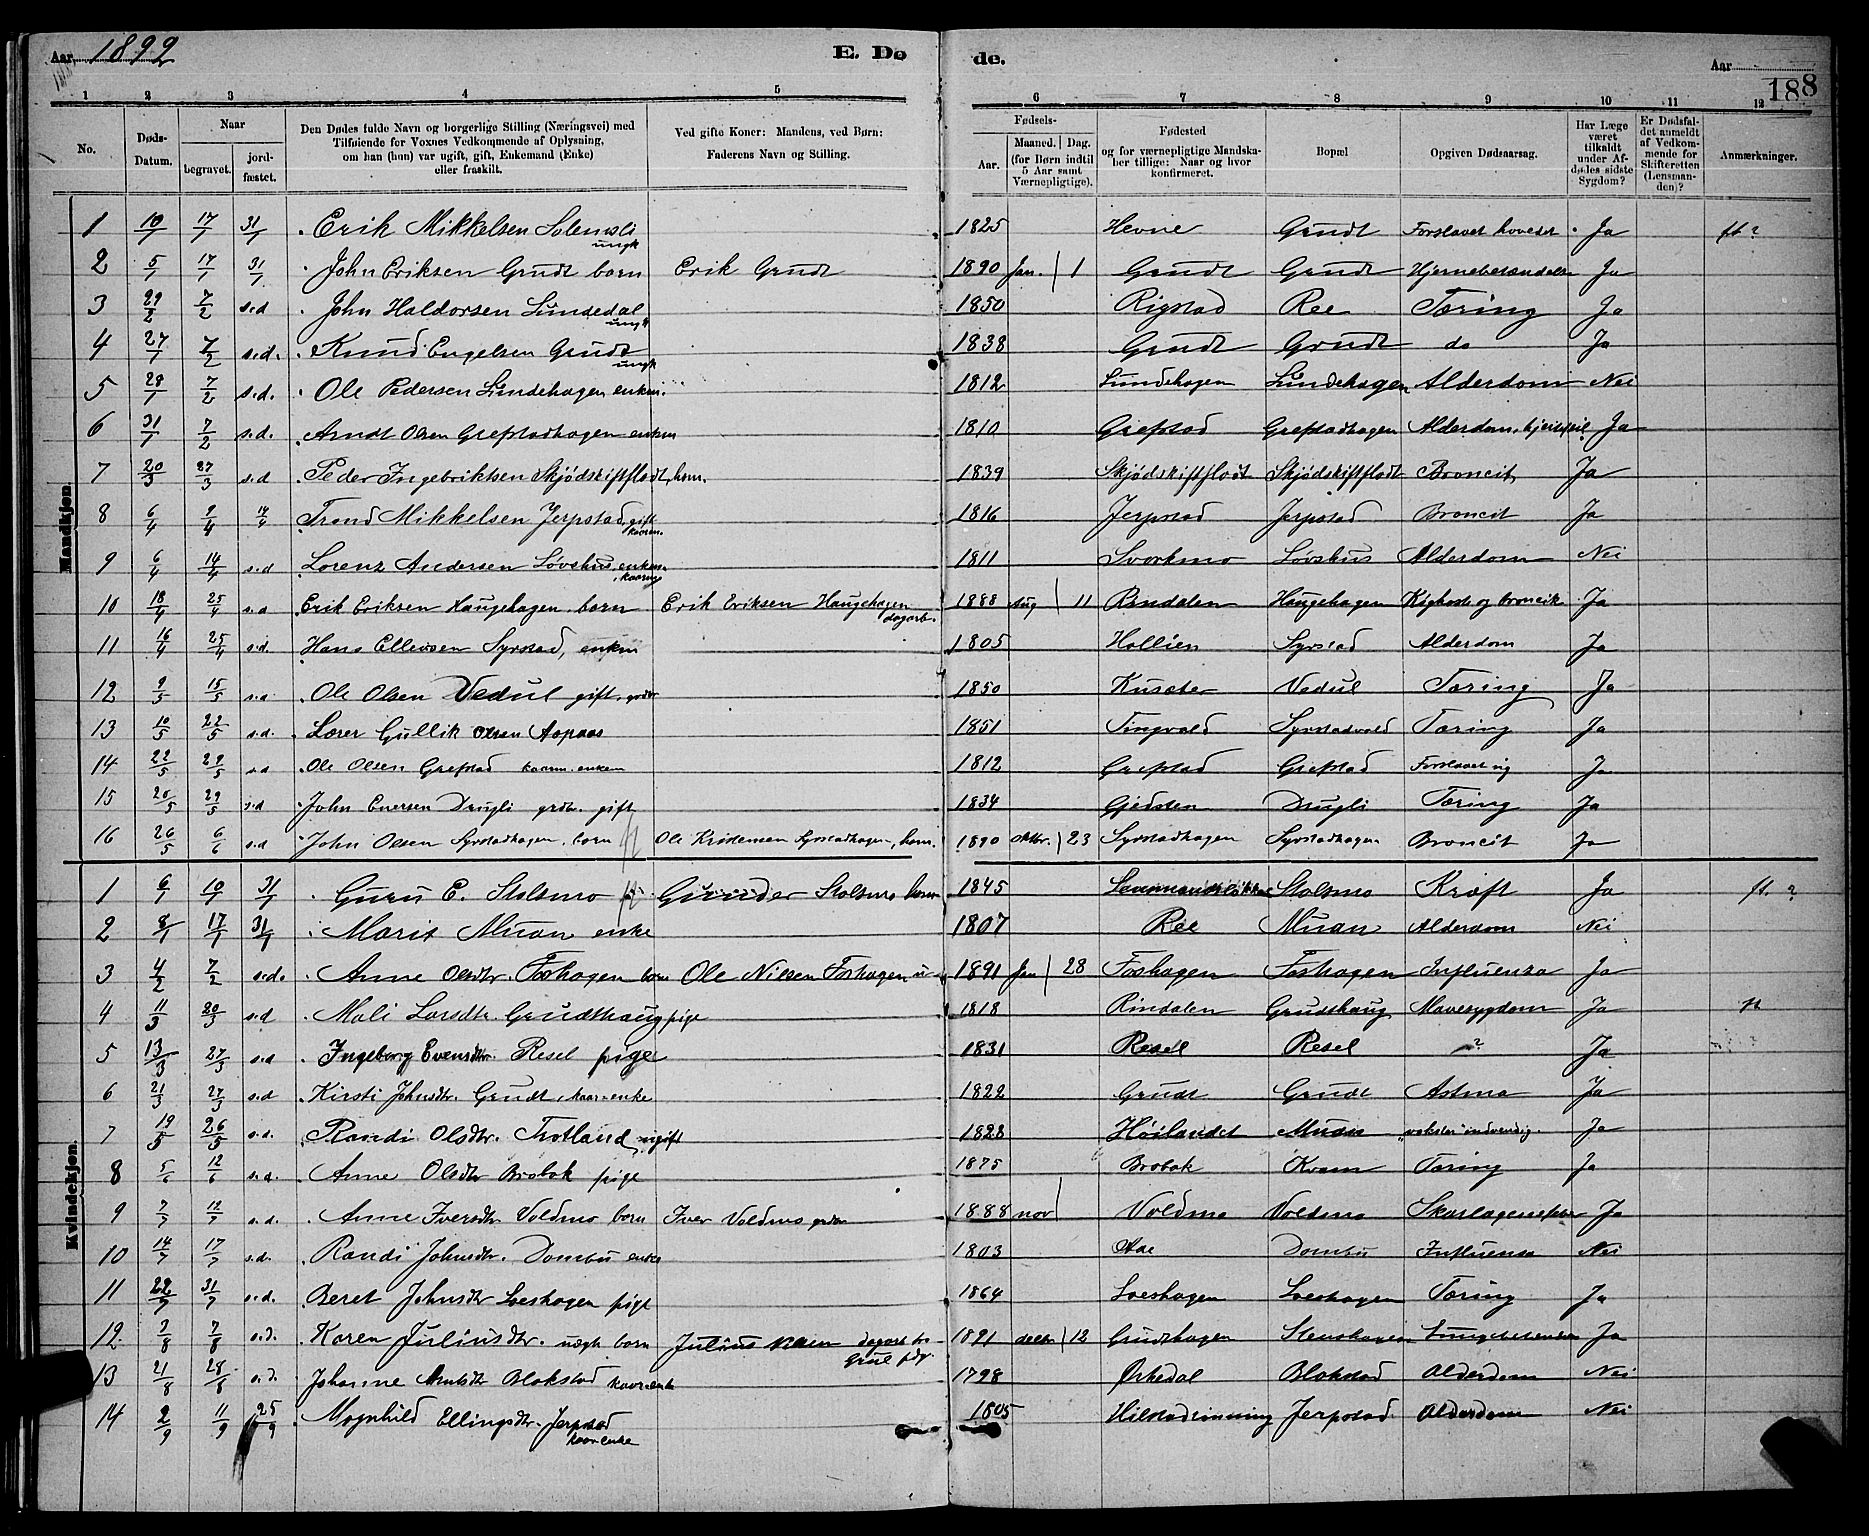 Aar 1892 E. Dø de. Aar 188
1 2 3 4 5 6 7 8 9 10 11 12
No. Døds-Datum. Naar begravet. jordfæstet. Den Dødes fulde Navn og borgerlige Stilling (Næringsvei) med Tilføiende for Voxnes Vedkommende af Oplysning, om han (hun) var ugift, gift, Enkemand (Enke) eller fraskilt. Ved gifte Koner: Mandens, ved Børn: Faderens Navn og Stilling. Fødsels- Aar. Maaned. Dag. (for Børn indtil 5 Aar samt Værnepligtige). Fødested og for værnepligtige Mandskaber tillige: Naar og hvor konfirmeret. Bopæl. Opgiven Dødsaarsag. Har Læge været tilkaldt under Afdødes sidste Sygdom? Er Dødsfaldet anmeldt af Vedkommende for Skifteretten (Lensmanden)? Anmærkninger.
Mandkjøn.
1 10/1 17/1 31/1 Erik Mikkelsen Solemsli ungk 1825 Hevne Grudt Forslaaet hovedet Ja ft?
2 5/1 17/1 31/1 John Eriksen Grudt barn Erik Grudt 1890 Jan. 1 Grudt Grudt Hjernebetændelse Ja
3 29/2 7/2 s.d John Haldorsen Lundedal ungk 1850 Rigstad Ree Tæring Ja
4 27/1 7/2 s.d. Knud Engelsen Grudt ungk 1838 Grudt Grudt do Ja
5 28/1 7/2 s.d. Ole Pedersen Lundehagen enkm. 1812 Lundehagen Lundehagen Alderdom Nei
6 31/1 7/2 s.d. Arndt Olsen Grefstadhagen enkm 1810 Grefstad Grefstadhagen Alderdom, hjertefeil Ja
7 20/3 27/3 s.d Peder Ingebriktsen Skjødskiftflodt, hsm. 1839 Skjødskiftflodt Skjødskiftflodt Broncit Ja
8 6/4 9/4 19/4 Trond Mikkelsen Jerpstad, gift kaarm. 1816 Jerpstad Jerpstad Broncit Ja
9 6/4 14/4 s.d Lorenz Andersen Løvshus, enkem. kaarm 1811 Svorkmo Løvshus Alderdom Nei
10 18/4 25/4 s.d Erik Eriksen Haugehagen barn Erik Eriksen Haugehagen dagarb. 1888 Aug 11 Rindalen Haugehagen Kighoste og broncit Ja
11 16/4 25/4 s.d. Hans Ellevsen Syrstad, enkm 1805 Hollien Syrstad Alderdom Ja
12 9/5 15/5 s.d. Ole Olsen Vedul gift, grdbr 1850 Kusæter Vedul Tæring Ja
13 10/5 22/5 s.d. Lærer Gullik Olsen Aspaas 1851 Tingvold Syrstadvold Tæring Ja
14 22/5 29/5 s.d Ole Olsen Grefstad kaarm. enkem 1812 Grefstad Grefstad Forslaaet sig Ja
15 20/5 29/5 s.d John Enersen Drugli grdbr. gift 1834 Gjedsten Drugli Tæring Ja
16 26/5 6/6 s.d John Olsen Syrstadhagen, barn Ole Kristensen Syrstadhagen, hsm. 1890 oktbr. 23 Syrstadhagen Syrstadhagen Broncit Ja
Kvindekjøn.
1 6/1 10/1 31/1 Guru E. Stolsmo Gunder Stolsmo hsm 1845 Stolsmo Kræft Ja ft. ?
2 8/1 17/1 31/1 Marit Muan enke 1807 Ree Muan Alderdom Nei
3 4/2 7/2 s.d. Anne Olsdtr. Foshagen barn Ole Nilsen Foshagen 1891 Jan 28 Foshagen Foshagen Influenza Ja
4 11/3 20/3 s.d Mali Larsdtr. Grudthaug pige 1818 Rindalen Grudthaug Mavesygdom Ja ft
5 13/3 27/3 s.d Ingeborg Evensdtr. Resel pige 1831 Resel Resel ? Ja
6 21/3 27/3 s.d Kirsti Johnsdtr. Grudt, kaar-enke 1822 Grudt Grudt Astma Ja
7 19/5 26/5 s.d. Randi Olsdtr. Trotland, ugift 1828 Høilandet Muan "vækster" indvendig. Ja
8 5/6 12/6 s.d. Anne Olsdtr Brobak pige 1875 Brobak Kvam Tæring Ja
9 7/7 12/7 s.d. Anne Iversdtr. Voldmo barn Iver Voldmo grdbr 1888 nov Voldmo Voldmo Skarlagensfeber Ja
10 14/7 17/7 s.d. Randi Johnsdtr. Dombu enke 1803 Aae Dombu Influensa Nei
11 22/7 31/7 s.d. Beret Johnsdtr Loeshagen pige 1864 Loeshagen Loeshagen Tæring Ja
12. 3/8 7/8 s.d. Karen Juliusdtr. uægte barn Julius Nilsen dagarb. 1891 decbr 12 Grudthagen Ja
13 21/8 28/8 s.d. Johanne Arntsdtr Blokstad kaarenke 1798 Ørkedal Blokstad Alderdom Nei
14 2/9 11/9 25/9 Magnhild Ellingsdtr. Jerpstad kaarenke 1805 Hilstadrønning Jerpstad Alderdom Nei